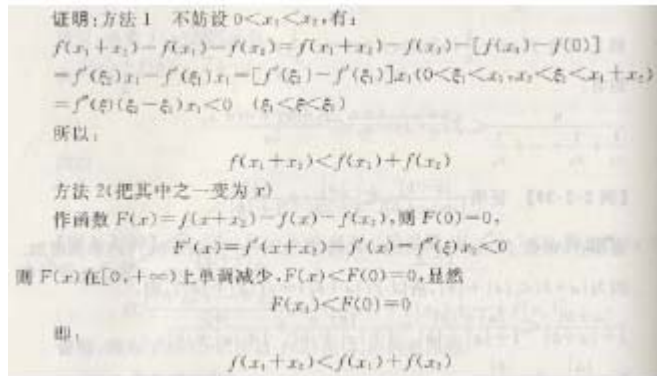 证明:方法1 不妨设0<x₁<x₂,有:
f(x₁+x₂)-f(x₁)-f(x₂)=f(x₁+x₂)-f(x₂)-[f(x₁)-f(0)]
=f′(ξ₂)x₁-f′(ξ₁)x₁=[f′(ξ₂)-f′(ξ₁)]x₁(0<ξ₁<x₁,x₂<ξ₂<x₁+x₂)
=f″(ξ)(ξ₂-ξ₁)x₁<0 (ξ₁<ξ<ξ₂)
所以:
f(x₁+x₂)<f(x₁)+f(x₂)
方法2(把其中之一变为x)
作函数F(x)=f(x+x₂)-f(x)-f(x₂),则F(0)=0,
F′(x)=f′(x+x₂)-f′(x)=f″(ξ)x₂<0
则F(x)在[0,+∞)上单调减少,F(x)<F(0)=0,显然
F(x₁)<F(0)=0
即:
f(x₁+x₂)<f(x₁)+f(x₂)